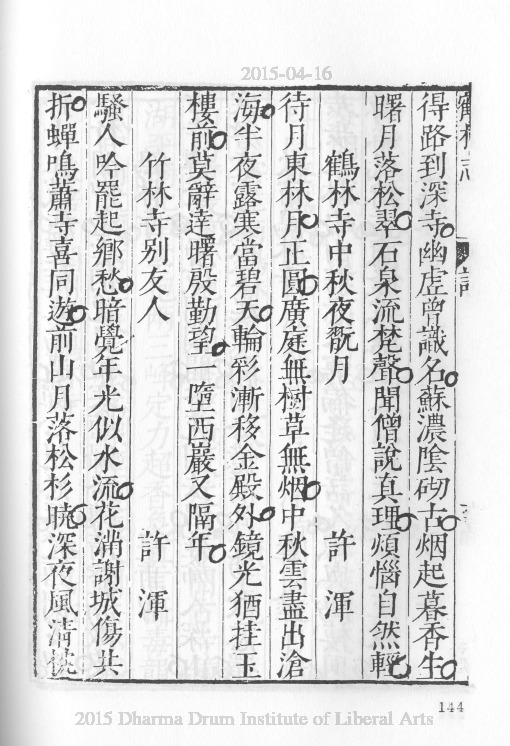 2015-04-16
鶴林志
詩
得路到深寺幽虛曾識名蘇濃陰砌古烟起暮香生
曙月落松翠石泉流梵聲聞僧說真理煩惱自然輕
鶴林寺中秋夜翫月 許渾
待月東林月正圓廣庭無樹草無烟中秋雲盡出滄
海半夜露寒當碧天輪彩漸移金殿外鏡光猶挂玉
樓前莫辭達曙殷勤望一墮西巖又隔年
竹林寺别友人 許渾
騷人吟罷起鄉愁暗覺年光似水流花滿謝城傷共
折蟬鳴蕭寺喜同遊前山月落松杉曉深夜風清枕
144
2015 Dharma Drum Institute of Liberal Arts